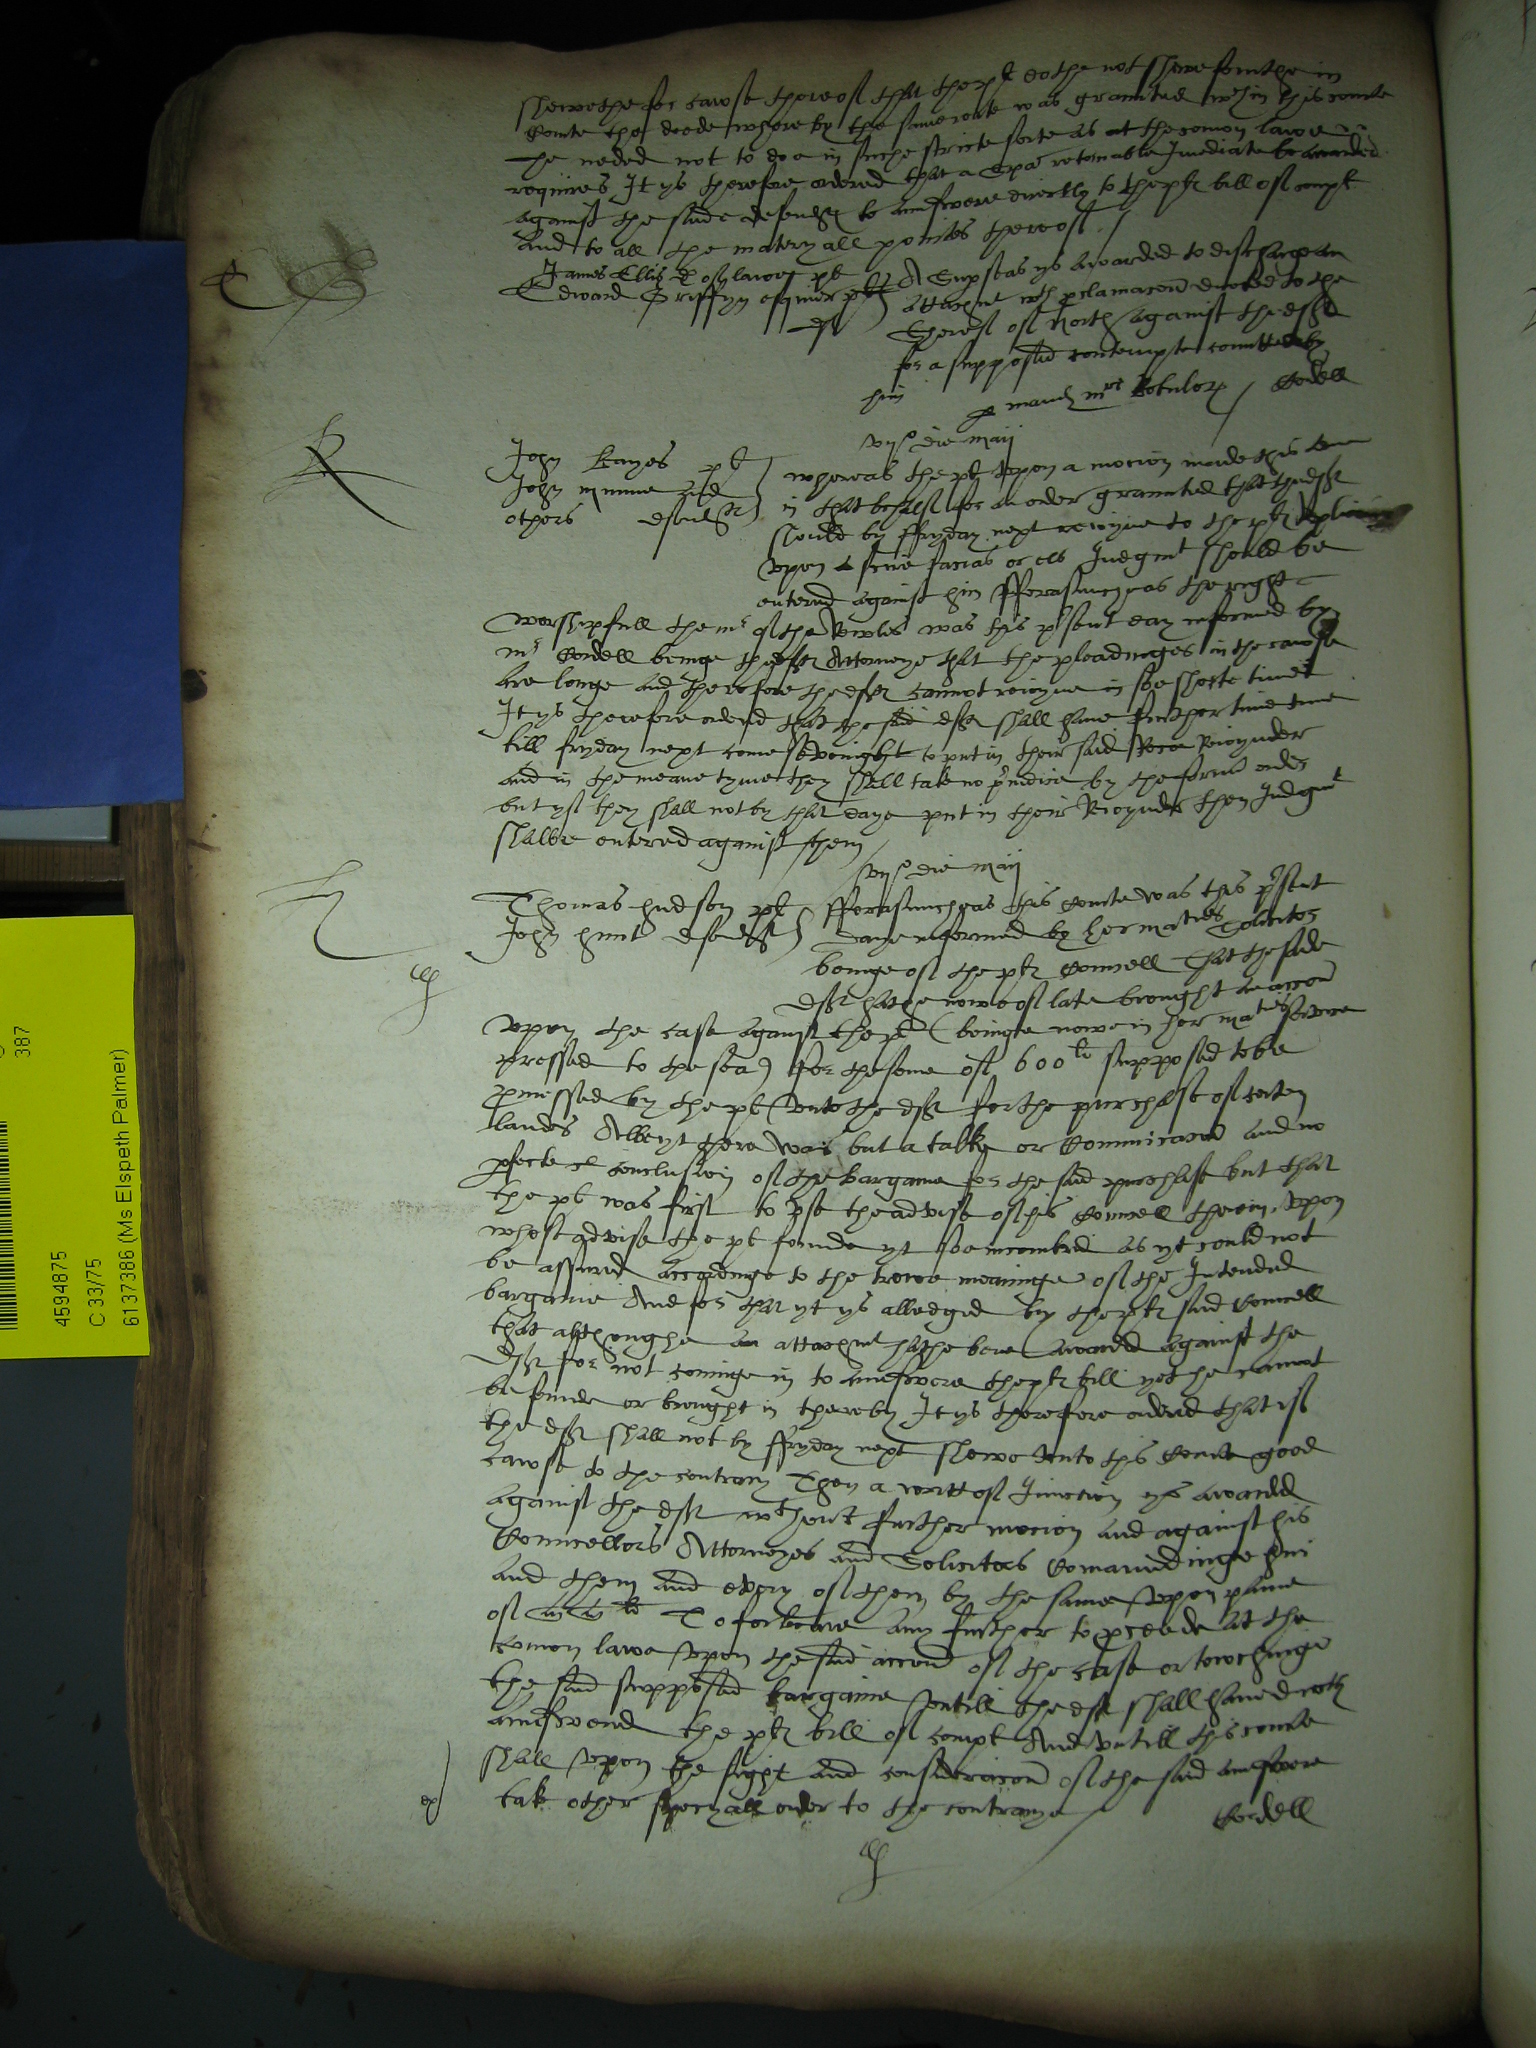 shewethe for cawse thereof that the pl dothe not shewe forthe in
Courte the deede whereby the same rente was graunted wch in this courte
he neded not to doe in suche stricte sorte as at the comon lawe
requires It ys therefore ordered that a Spa retornable Imediate be awarded
against the saide defendt to aunswere directly to the pltes bill of complt
and to all the materyall pointes thereof /
James Ellis D of lawes pl
Edward Griffyn esquier
df
A Supseas ys awarded to discharge an
attachmt wth pclamacon directed to the
Sheref of North against the deft
for a supposed contempte comitted by
him
p mand mri Rotulor / Cordell
vijo die Maij
John Kayes pl
John and
others defendtes
whereas the pl upon a mocion made this
in that behalf for an order graunted that the deftes
should by ffryday next reioyne to the pltes
upon a scire facias or els Judgmt should be
entered against him fforasmuch as the right
worshipfull the mr of the Rowles was this psent day informed by
mr Cordell beinge the deftes Attorneye that the pleadinges in the cawse
are longe and therefore the deftes cannot reioyne in soe shorte time
It ys therefore ordered that the said deftes shall have further time
till fryday next come sevenight to put in their said Reioynder
and in the meane tyme they shall take no preiudice by the former order
but yf they shall not by that daye put in their Reioynder then Judgmt
shalbe entered against them
vijo die Maij
Thomas Hudson pl
John Hunt defendt
fforasmuch as this Courte was this psent
daye informed by her maties Solicitor
beinge of the pltes Councell That the saide
deft hathe nowe of late brought an accon
upon the case against the pl (beinge nowe in her maties service
pressed to the sea) for the some of 600li supposed to be
pmessed by the pl unto the deft for the purchase of certen
landes Albeyt there was but a talke or Communicacon and no
pfecte conclusion of the bargaine for the said purchase but that
the pl was first to use the advise of his Councell therein, upon
whose advise the pl founde yt soe incombred as yt could not
be assured accordinge to the trewe meaninge of the Intended
bargaine And for that yt ys alledged by the pltes said Councell
that althoughe an attachmt hathe bene awarded against the
deft for not cominge in to aunswere the pltes bill yet he cannot
be founde or brought in thereby It ys therefore ordered that if
the deft shall not by ffryday next shewe unto this Courte good
cawse to the contrary Then a writt of Iniunction ys awarded
against the deft wthout further mocion and against his
Councellors Attorneyes and Solicitors Comaundinge him
and them and every of them by the same upon paine
of To forbeare any further to pceede at the
comon lawe upon the said accon of the case or towchinge
the said supposed bargaine untill the deft shall have directly
aunswered the pltes bill of complt And untill this courte
shall upon the sight and consideracon of the said aunswere
take other specyall order to the contrarye /
Cordell
ex
387
4594875
C 33/75
61137386 (Ms Elspeth Palmer)